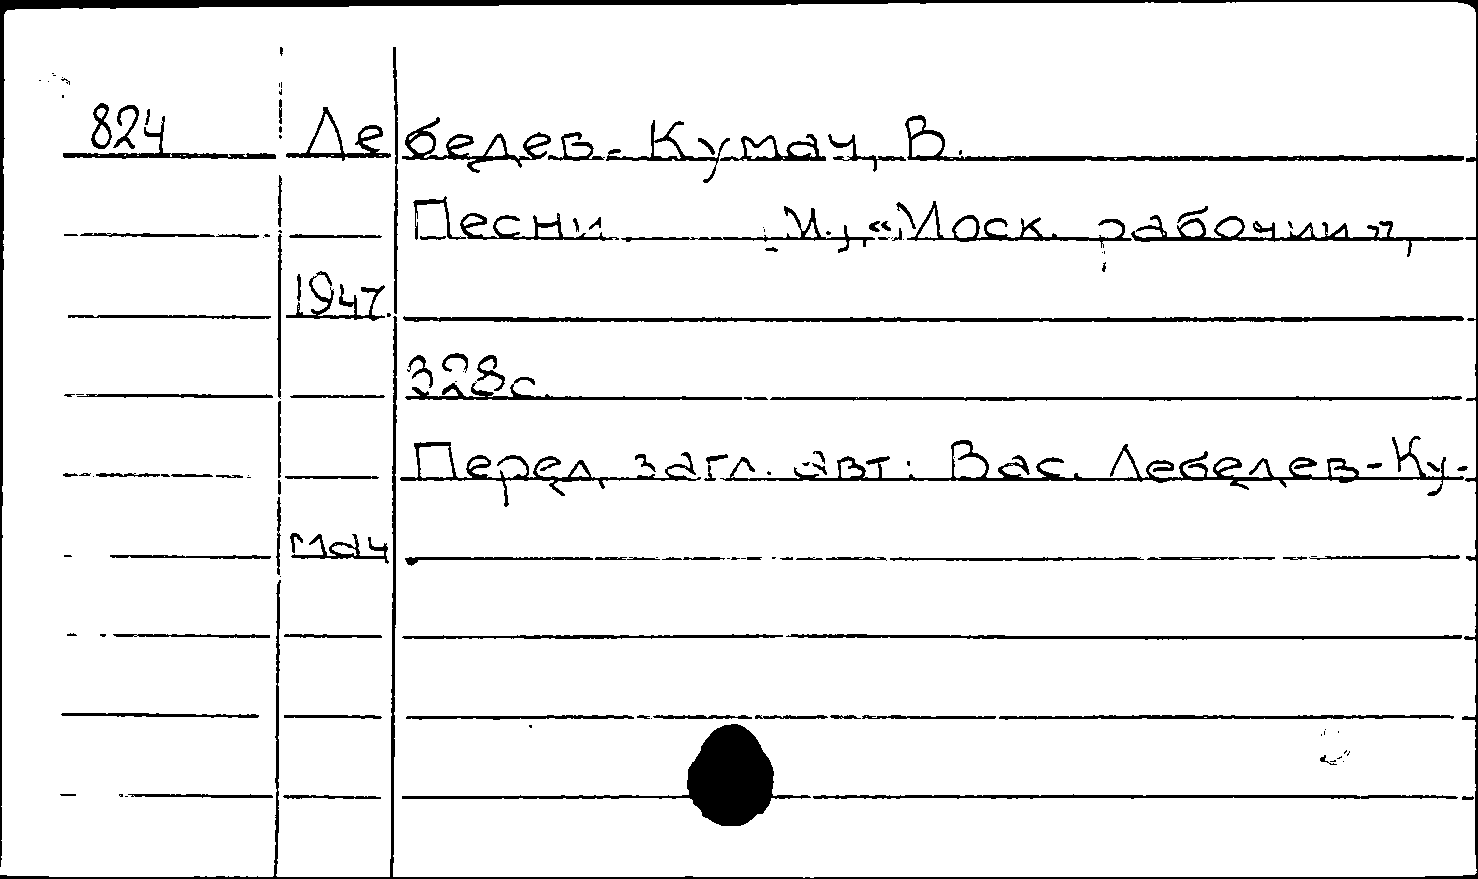 824 Лебедев-Кумач, В.
Песни. М., «Моск. рабочий»,
1947.
328с.
Перед загл. авт.: Вас. Лебедев-Ку-
мач.